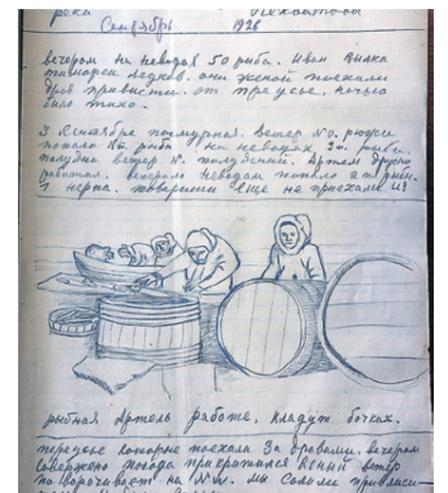 река
Сентябрь 1926
вечером на неводах 50 рыба. Иван Вылка
тимофей ледков. они женой поехали
дров привисти. от преусье. ночью
было тихо.
3 Сентября пасмурная. ветер NO. рюжи
попало рыба на неводах 3т. рыбы.
полудня ветер N. полуденный. Артель дружно
работал. вечером неводам попало 2т рыбы.
1 нерпа. товарищи еще не приехали из
рыбная Артель работе, кладут бочках.
переусье которые поехали за дровами. вечером
совержено погода прикратился ясный ветер
поворачивает на NW. мы солили